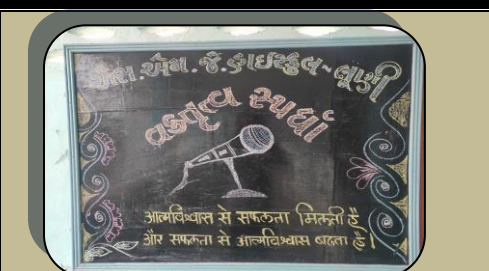 એસ.એમ.જે.હાઇસ્કુલ-લૂણી
વક્તૃત્વ સ્પર્ધા
आत्मविश्वास से सफलता मिलती है
और सफलता से आत्मविश्वास बढता है।